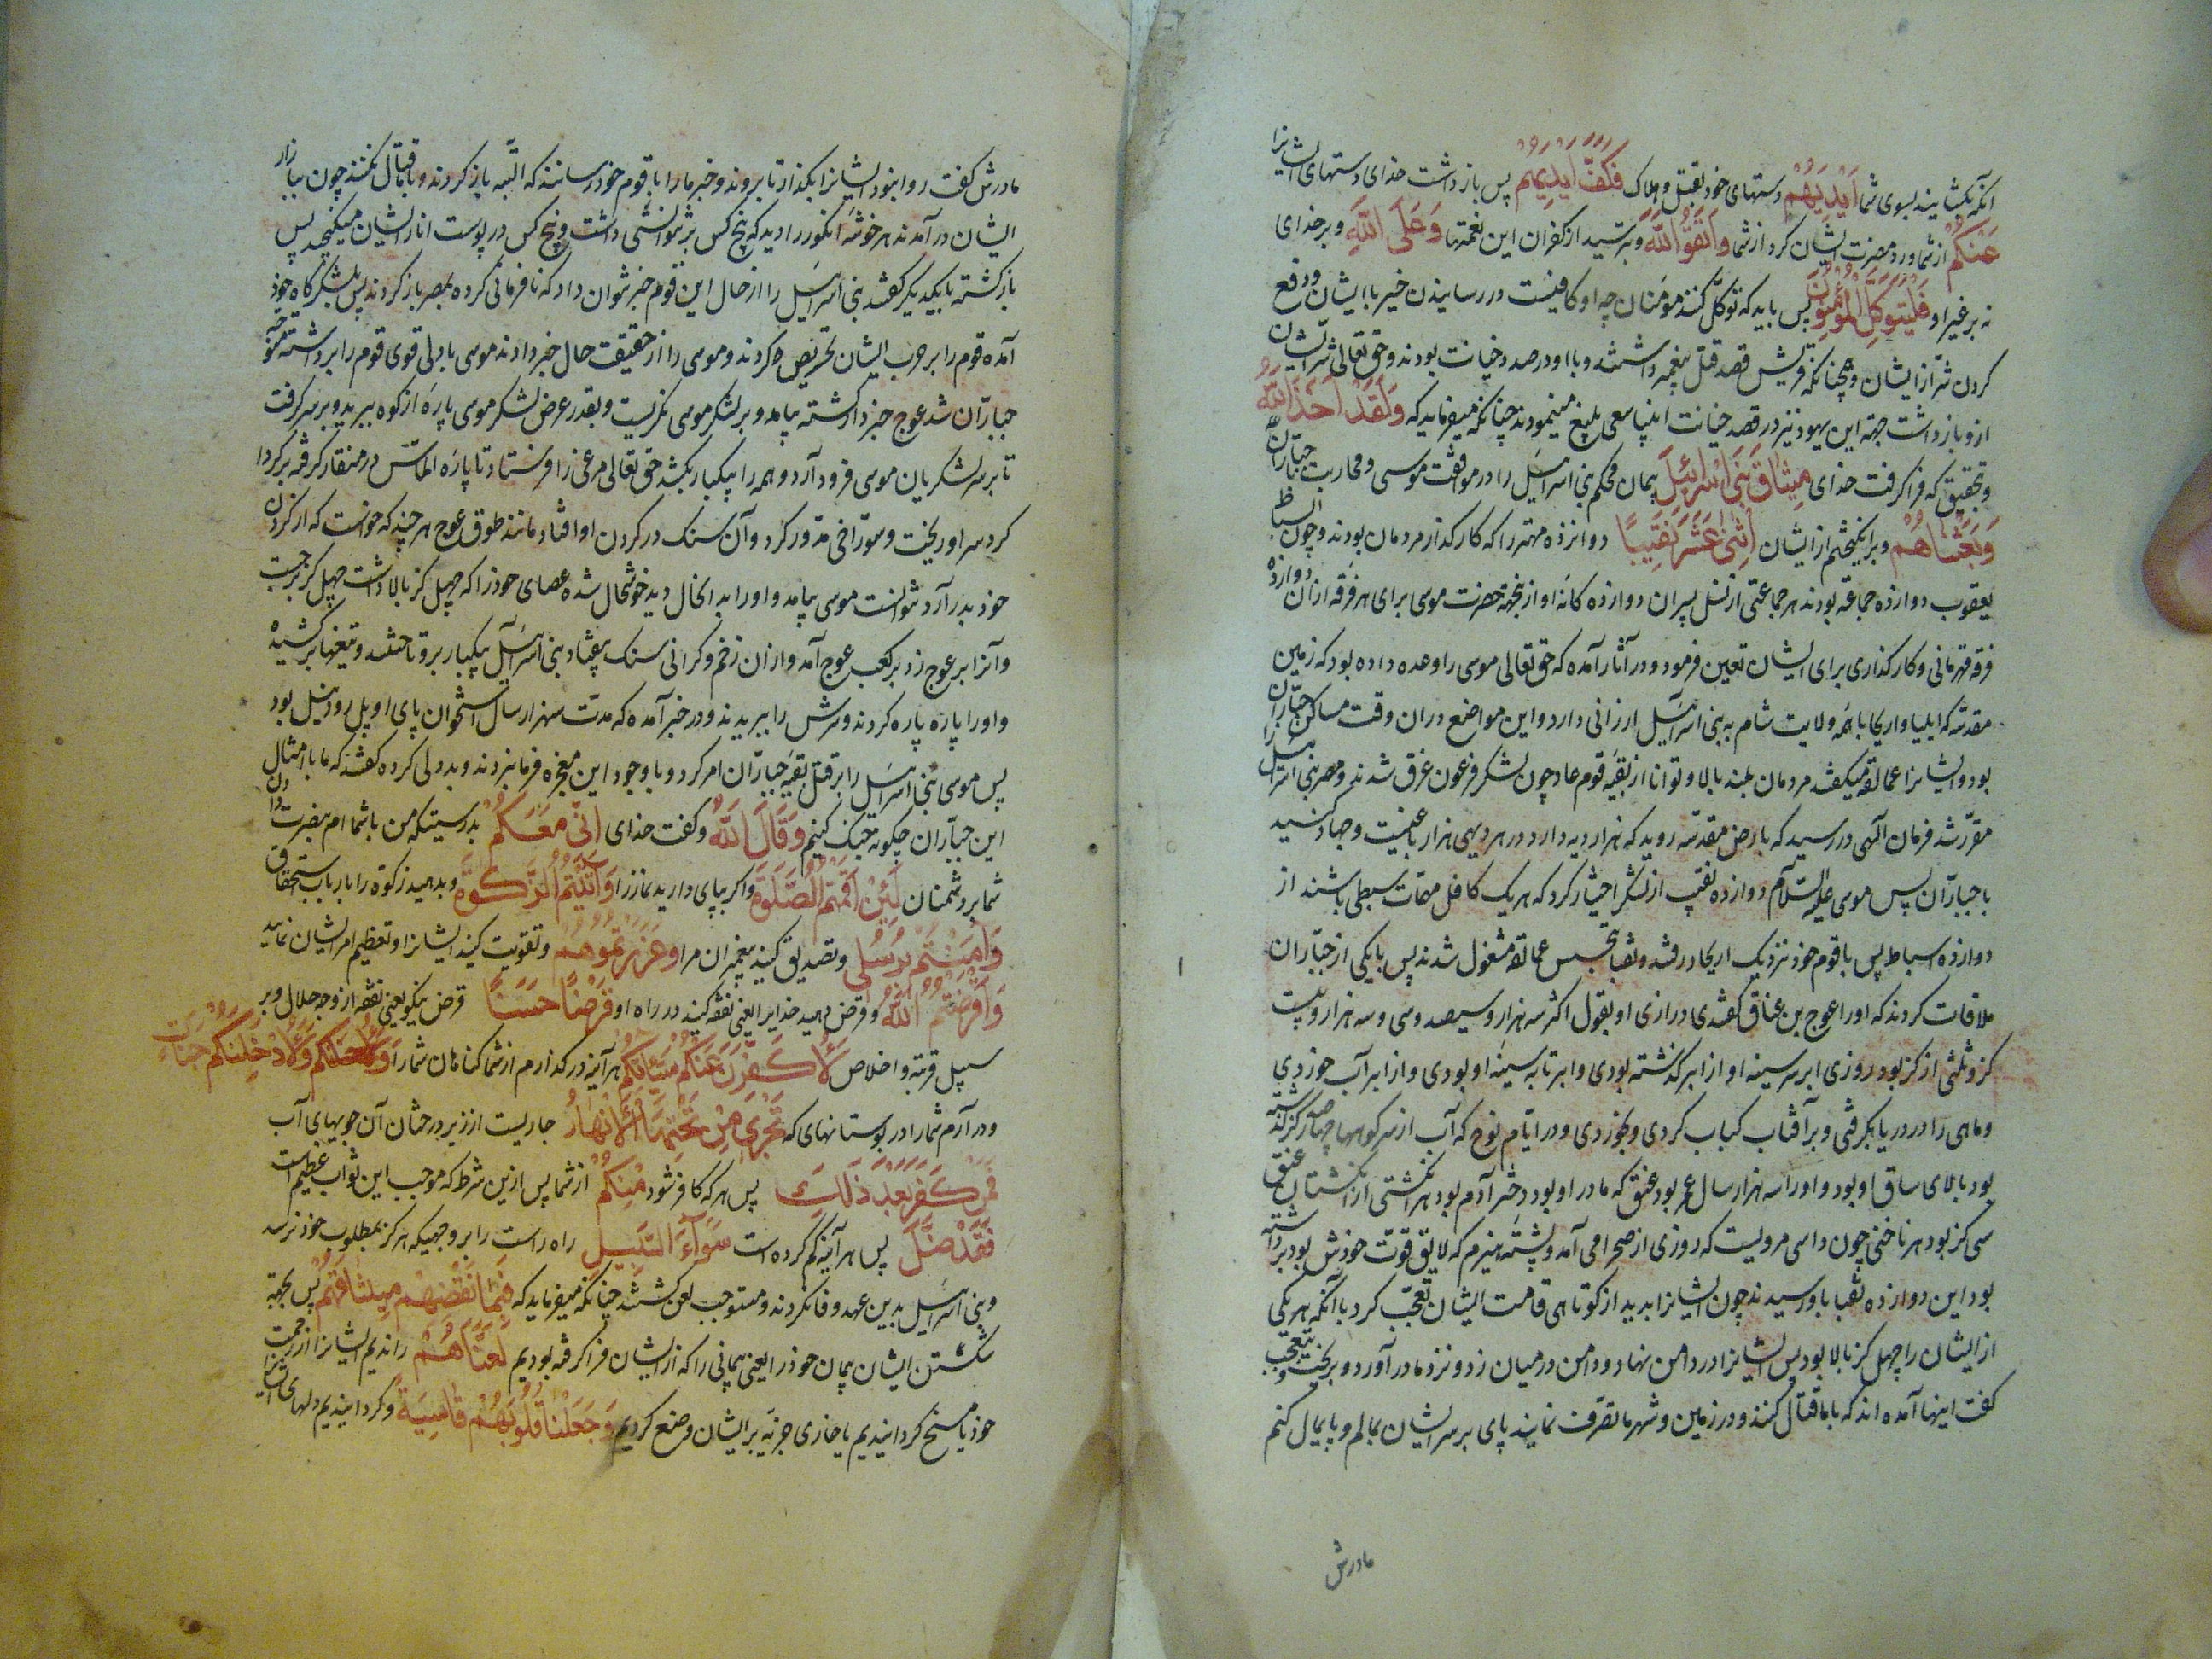 آنکه بکشایند بسوی شما اَیْدِیَهُمْ دستهای خود بقتل و هلاک فَکَفَّ اَیْدِیَهُمْ پس باز داشت خدای دستهای ایشانرا
عَنْکُمْ از شما و رد مضرت ایشان کرد از شما وَاتَّقُوا اللّٰهَ و بترسید از کفران این نعمتها وَعَلَی اللّٰهِ و بر خدای
نه بر غیر او فَلْیَتَوَکَّلِ الْمُؤْمِنُونَ پس باید که توکل کنند مؤمنان چه او کافیست در رسانیدن خیر با ایشان و دفع
کردن شر از ایشان و همچنانکه قریش قصد قتل پیغمبر داشتند و با او در صدد خیانت بودند و حق تعالی شر ایشان
ازو باز داشت جهة این یهود نیز در قصد خیانت انبیا سعی بلیغ مینمودند چنانکه میفرماید که وَلَقَدْ اَخَذَ اللّٰهُ
و بتحقیق که فرا کرفت خدای مِیثَاقَ بَنِی اِسْرَائِیلَ پیمان محکم بنی اسرائیل را در موافقت موسی و محاربت جباران
وَبَعَثْنَاهُمْ و برانکیختیم از ایشان اثْنَی عَشَرَ نَقِیبًا دوازده مهتر را که کارکذار مردمان بودند و چون اسباط
یعقوب دوازده جماعة بودند هر جماعتی از نسل پسران دوازده کانه او ازینجهة حضرت موسی برای هر فرقه ازان دوازده
فرقه قهرمانی و کارکذاری برای ایشان تعیین فرمود و در آثار آمده که حق تعالی موسی را وعده داده بود که زمین
مقدسه که ایلیا و اریحا با همه ولایت شام به بنی اسرائیل ارزانی دارد و این مواضع دران وقت مساکن جباران
بود و ایشانرا عمالقه میکفتند مردمان بلند بالا و توانا از بقیه قوم عاد چون لشکر فرعون غرق شدند و مصر بنی اسرائیل را
مقرر شد فرمان الهی در رسید که بارض مقدسه روید که هزار دیه دارد در هر دیهی هزار باغیست و جهاد کنید
با جباران پس موسی علیه السلام دوازده نقیب از لشکر اختیار کرد که هر یک کافل مهمات سبطی باشند از
دوازده اسباط پس با قوم خود نزدیک اریحا در رفتند و نقبا بتجسس عمالقه مشغول شدند پس با یکی از جباران
ملاقات کردند که او را عوج بن عناق کفتندی درازی او بقول اکثر سه هزار و سیصد و سی و سه هزار و بیست
کز و ثلثی از کز بود روزی ابر سر سینه او از ابر کذشته بودی و ابر تا به سینه او بودی و از ابر آب خوردی
و ماهی را در دریا بکرفتی و بر آفتاب کباب کردی و بخوردی و در ایام نوح که آب از سر کوهها چهل کز کذشته
بود بالای ساق او بود و او را سه هزار سال عمر بود عنق که مادر او بود دختر آدم بود هر انکشتی از انکشتان عنق
سی کز بود هر ناخنی چون داسی مرویست که روزی از صحرا می آمد و پشته هیزم که لایق قوت خودش بود برداشته
بود این دوازده نقبا باو رسیدند چون ایشانرا بدید از کوتاهی قامت ایشان تعجب کرد با آنکه هر یکی
از ایشان را چهل کز بالا بود پس ایشانرا در دامن نهاد و دامن در میان زد و نزد مادر آورد و بریخت و بتعجب
کفت اینها آمده اند که با ما قتال کنند و در زمین و شهر ما تصرف نمایند پای بر سر ایشان بمالم و پایمال کنم
مادرش
مادرش کفت روا نبود ایشانرا بکذار تا بروند و خبر ما را با قوم خود رسانند که البته باز کردند و با ما قتال نکنند چون ببازار
ایشان در آمدند هر خوشه انکور را دید که پنج کس برنتوانستی داشت و پنج کس در پوست انار ایشان میکنجید پس
باز کشته با یکدیکر کفتند بنی اسرائیل را از حال این قوم خبر نتوان داد که نافرمانی کرده بمصر باز کردند پس بلشکرکاه خود
آمده قوم را بر حرب ایشان تحریص کردند و موسی را از حقیقت حال خبر دادند موسی با دلی قوی قوم را برداشته متوجه
جباران شد عوج خبر داشته بیامد و بر لشکر موسی نکریست و بقدر عرض لشکر موسی پاره از کوه ببرید و بر سر کرفت
تا بر سر لشکریان موسی فرود آرد و همه را بیکبار بکشد حق تعالی مرغی را فرستاد تا پاره الماس در منقار کرفته بر کردا
کرد سر او ریخت و سوراخی مدور کرد و آن سنک در کردن او افتاد مانند طوق عوج هر چند که خواست که از کردن
خود بدر آرد نتوانست موسی بیامد و او را به انحال دید خوشحال شده عصای خود را که چهل کز بالا داشت چهل کز برجست
و آنرا بر عوج زد بر کعب عوج آمد و ازان زخم و کرانی سنک بیفتاد بنی اسرائیل بیکبار برو تاختند و تیغها بر کشیده
و او را پاره پاره کردند و سرش را ببریدند و در خبر آمده که مدت سه هزار سال استخوان پای او پل رود نیل بود
پس موسی بنی اسرائیل را بر قتل بقیه جباران امر کرد و با وجود این معجزه فرمان نبردند و بددلی کرده کفتند که ما با امثال
این جباران چکونه جنک کنیم وَقَالَ اللّٰهُ و کفت خدای اِنِّی مَعَکُمْ بدرستیکه من با شماام بنصرت دادن
شما بر دشمنان لَئِنْ اَقَمْتُمُ الصَّلٰوةَ و اکر بپای دارید نماز را وَآتَیْتُمُ الزَّکٰوةَ و بدهید زکوة را بارباب استحقاق
وَآمَنْتُمْ بِرُسُلِی و تصدیق کنید پیغمبران مرا وَعَزَّرْتُمُوهُمْ و تقویت کنید ایشانرا و تعظیم امر ایشان نمایید
وَاَقْرَضْتُمُ اللّٰهَ و قرض دهید خدایرا یعنی نفقه کنید در راه او قَرْضًا حَسَنًا قرض نیکو یعنی نفقه از وجه حلال و بر
سبیل قربة و اخلاص لَاُکَفِّرَنَّ عَنْکُمْ سَیِّئَاتِکُمْ هر آینه در کذارم از شما کناهان شما را وَلَاُدْخِلَنَّکُمْ جَنَّاتٍ
و در آرم شما را در بوستانهای که تَجْرِی مِنْ تَحْتِهَا الْاَنْهَارُ جاریست از زیر درختان آن جویهای آب
فَمَنْ کَفَرَ بَعْدَ ذٰلِکَ پس هر که کافر شود مِنْکُمْ از شما پس ازین شرط که موجب این ثواب عظیم است
فَقَدْ ضَلَّ پس هر آینه کم کرده است سَوَآءَ السَّبِیلِ راه راست را بر وجهیکه هرکز بمطلوب خود نرسد
و بنی اسرائیل بدین عهد وفا نکردند و مستوجب لعن کشتند چنانکه میفرماید که فَبِمَا نَقْضِهِمْ مِیثَاقَهُمْ پس بجهة
شکستن ایشان پیمان خود را یعنی پیمانی را که از ایشان فرا کرفته بودیم لَعَنَّاهُمْ راندیم ایشانرا از رحمت
خود یا مسخ کردانیدیم یا خواری جزیه بر ایشان وضع کردیم وَجَعَلْنَا قُلُوبَهُمْ قَاسِیَةً و کردانیدیم دلهای ایشانرا